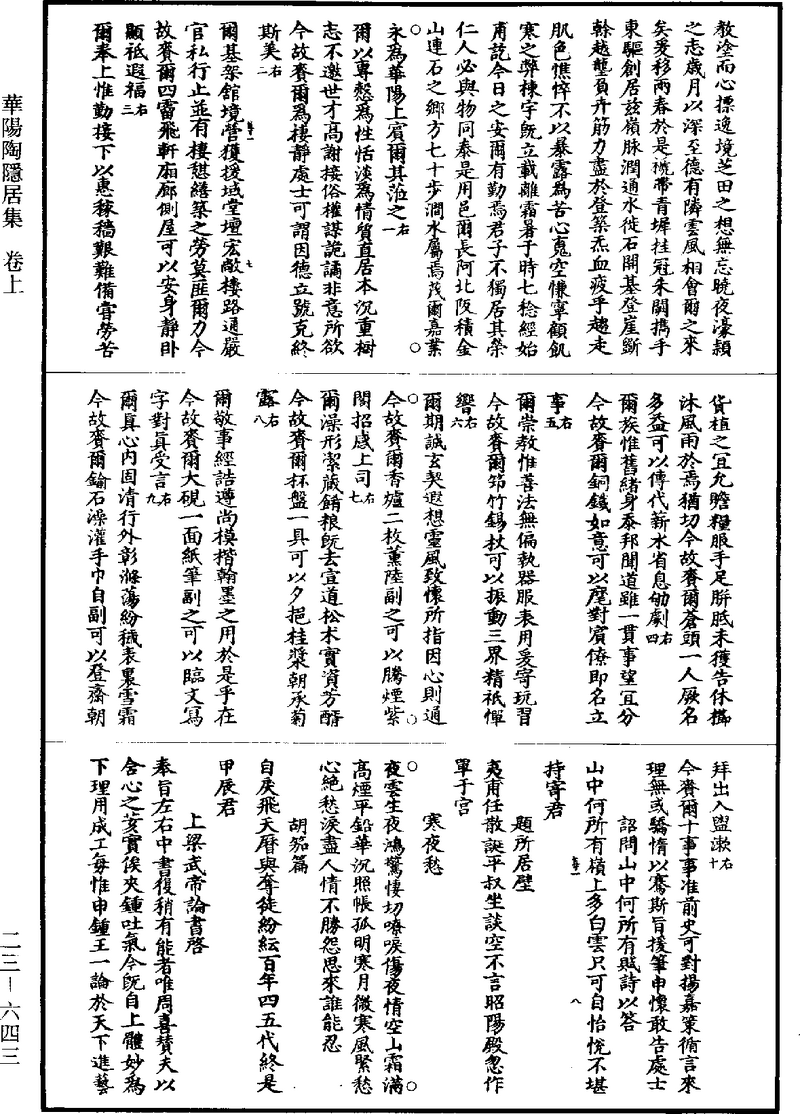 華陽陶隱居集　卷上
二三—六四三
教塗而心摽逸境芝田之想無忘曉夜濠潁
之志歲月以深至德有隣雲風相會爾之來
矣爰移兩春於是褫帶青墀挂冠朱闕擕手
東驅創居兹嶺脉潤通水徙石開基登崖斵
榦越壟負卉筋力盡於登築炁血疲乎趍走
肌色憔悴不以暴露爲苦心䰟空慊寧顧飢
寒之弊棟宇旣立載離霜暑于時七稔經始
甫訖今日之安爾有勤焉君子不獨居其榮
仁人必與物同泰是用邑爾長阿北阪積金
山連石之鄉方七十步澗水屬焉茂爾嘉業
永爲華陽上賓爾其蒞之右一
爾以專愨爲性恬淡爲情質直居本沉重樹
志不邀世才高謝接俗權謀詭譎非意所欲
今故賚爾爲棲靜處士可謂因德立號克終
斯美右二
爾基架舘境營獲援域堂壇宏敞樓路通嚴
官私行止並有棲㥦繕築之勞莫匪爾力今
故賚爾四霤飛軒廂廊側屋可以安身靜卧
顯袛遐福右三
爾奉上惟勤接下以惠稼穡艱難備甞勞苦
貨植之宜允贍糧服手足胼胝未獲告休櫛
沐風雨於焉猶切今故賚爾蒼頭一人厥名
多益可以傳代薪水省息劬劇右四
爾族惟舊緒身泰邦聞道雖一貫事望宜分
今故賚爾銅鐵如意可以麾對賓僚即名立
事右五
爾崇教惟善法無偏執器服表用爰寄玩習
今故賚爾笻竹錫杖可以振動三界精祇憚
響右六
爾期誠玄契遐想靈風致懷所指因心則通
今故賚爾香爐二枚薰陸副之可以騰煙紫
閣招感上司右七
爾澡形潔藏餚粮旣去宣道松术實資芳醑
今故賚爾杯盤一具可以夕挹桂漿朝承菊
露右八
爾敬事經誥遵尚模楷翰墨之用於是乎在
今故賚爾大硯一面紙筆副之可以臨文寫
字對眞受言右九
爾眞心内固清行外彰滌蕩紛穢表裏雪霜
今故賚爾鍮石澡灌手巾自副可以登齋朝
拜出入盥漱右十
今賚爾十事事准前史可對揚嘉策循言來
理無或驕惰以騫斯旨援筆申懷敢告處士
詔問山中何所有賦詩以荅
山中何所有嶺上多白雲只可自怡悅不堪
持寄君
題所居壁
夷甫任散誕平叔坐談空不言昭陽殿忽作
單于宫
寒夜愁
夜雲生夜鴻驚悽切嘹唳傷夜情空山霜滿
高煙平鉛華沉照帳孤明寒月微寒風緊愁
心絶愁淚盡人情不勝怨思來誰能忍
胡笳篇
自戾飛天曆與奪徒紛紜百年四五代終是
甲辰君
上梁武帝論書啓
奉旨左右中書復稍有能者唯周喜贊夫以
含心之荄實俟夾鍾吐氣今旣自上體妙爲
下理用成工每惟申鍾王一論於天下進藝